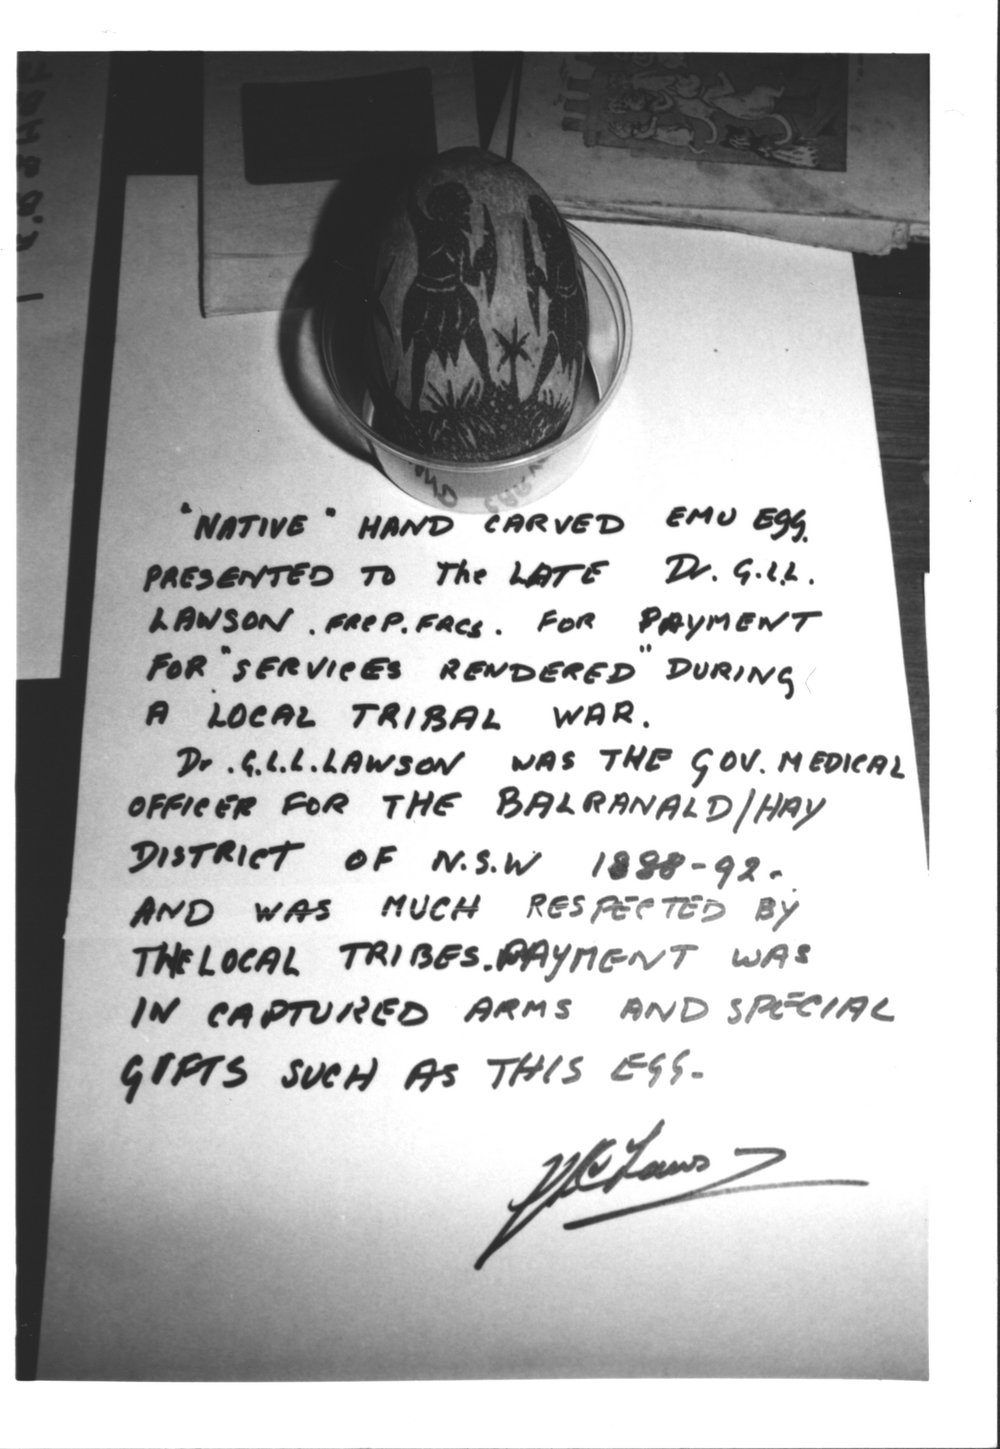 "NATIVE" HAND CARVED EMU EGG.
PRESENTED TO The LATE Dr. G.L.L.
LAWSON. FRCP. FRCS. FOR PAYMENT
FOR "SERVICES RENDERED" DURING
A LOCAL TRIBAL WAR.
Dr. G.L.L. LAWSON WAS THE GOV. MEDICAL
OFFICER FOR THE BALRANALD/HAY
DISTRICT OF N.S.W 1888-92.
AND WAS MUCH RESPECTED BY
THE LOCAL TRIBES. PAYMENT WAS
IN CAPTURED ARMS AND SPECIAL
GIFTS SUCH AS THIS EGG.
Lawson